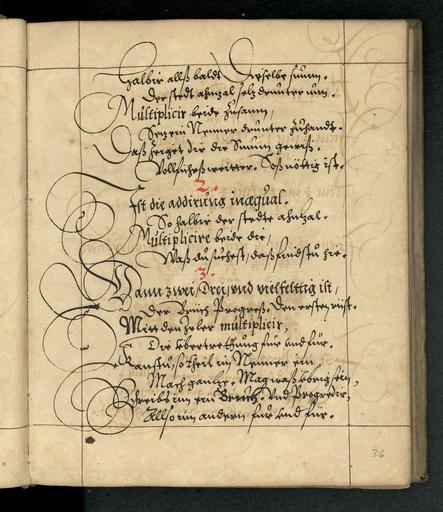 Halbir allß baldt Dieselbe summ.
Der stedt ahnzal setz drunter um.
Multiplicir beide zusamm,
Setz ein Nenner drunter zuhandt.
Daß zeiget dir die Summ gewiß.
Vollführß weitter. So ß nöttig ist.
2.
Ist die addirung inæqual.
So halbir der stedte ahnzal.
Multiplicire beide die,
Waß du suchest, daß findstu hie.
3.
Wann zwei, Drei, und vielfelttig ist,
Der Brüch Progreß. Den ersten
Mitt den Zeler multiplicir,
Die übertrettung für und für.
Kanstu, so theil im Nenner ein
Mach gantze. Mag waß übrig sein,
Schreibs inn ein Bruch. Und Progredir,
Allso inn andern für und für.
36